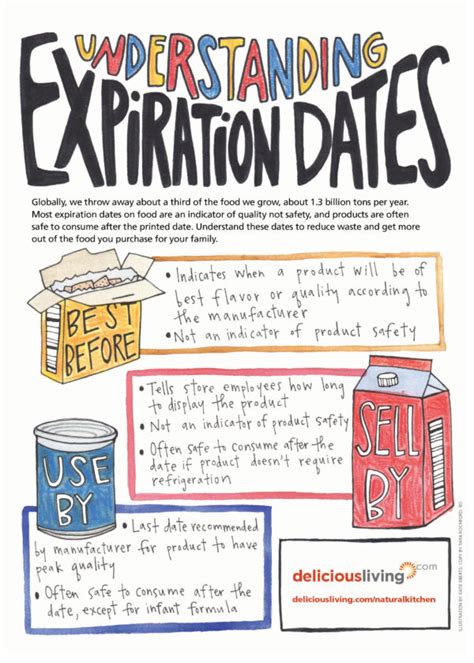 UNDERSTANDING
EXPIRATION DATES
Globally, we throw away about a third of the food we grow, about 1.3 billion tons per year.
Most expiration dates on food are an indicator of quality not safety, and products are often
safe to consume after the printed date. Understand these dates to reduce waste and get more
out of the food you purchase for your family.
BEST
BEFORE
• Indicates when a product will be of
best flavor or quality according to
the manufacturer
• Not an indicator of product safety
• Tells store employees how long
to display the product
• Not an indicator of product safety
• Often safe to consume after the
date if product doesn't require
refrigeration
SELL
BY
USE
BY
• Last date recommended
by manufacturer for product to have
peak quality
• Often safe to consume after the
date, except for infant formula
deliciousliving.com
deliciousliving.com/naturalkitchen